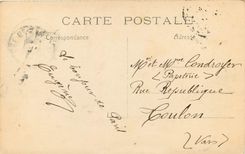 CARTE POSTALE
Correspondance
Adresse
Un bonjour de Paul
Mr et Mme Condroyer
(Papeterie)
Rue République
Toulon
(Var)